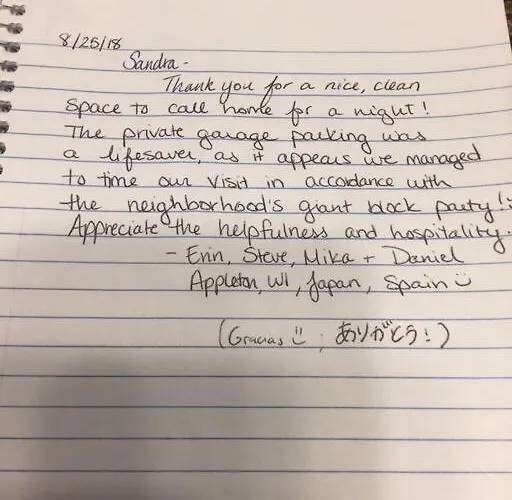 8/25/18
Sandra -
Thank you for a nice, clean
space to call home for a night!
The private garage parking was
a lifesaver, as it appears we managed
to time our visit in accordance with
the neighborhood's giant block party! :)
Appreciate the helpfulness and hospitality.
- Erin, Steve, Mika + Daniel
Appleton, WI, Japan, Spain :)
(Gracias :) ; ありがとう!)